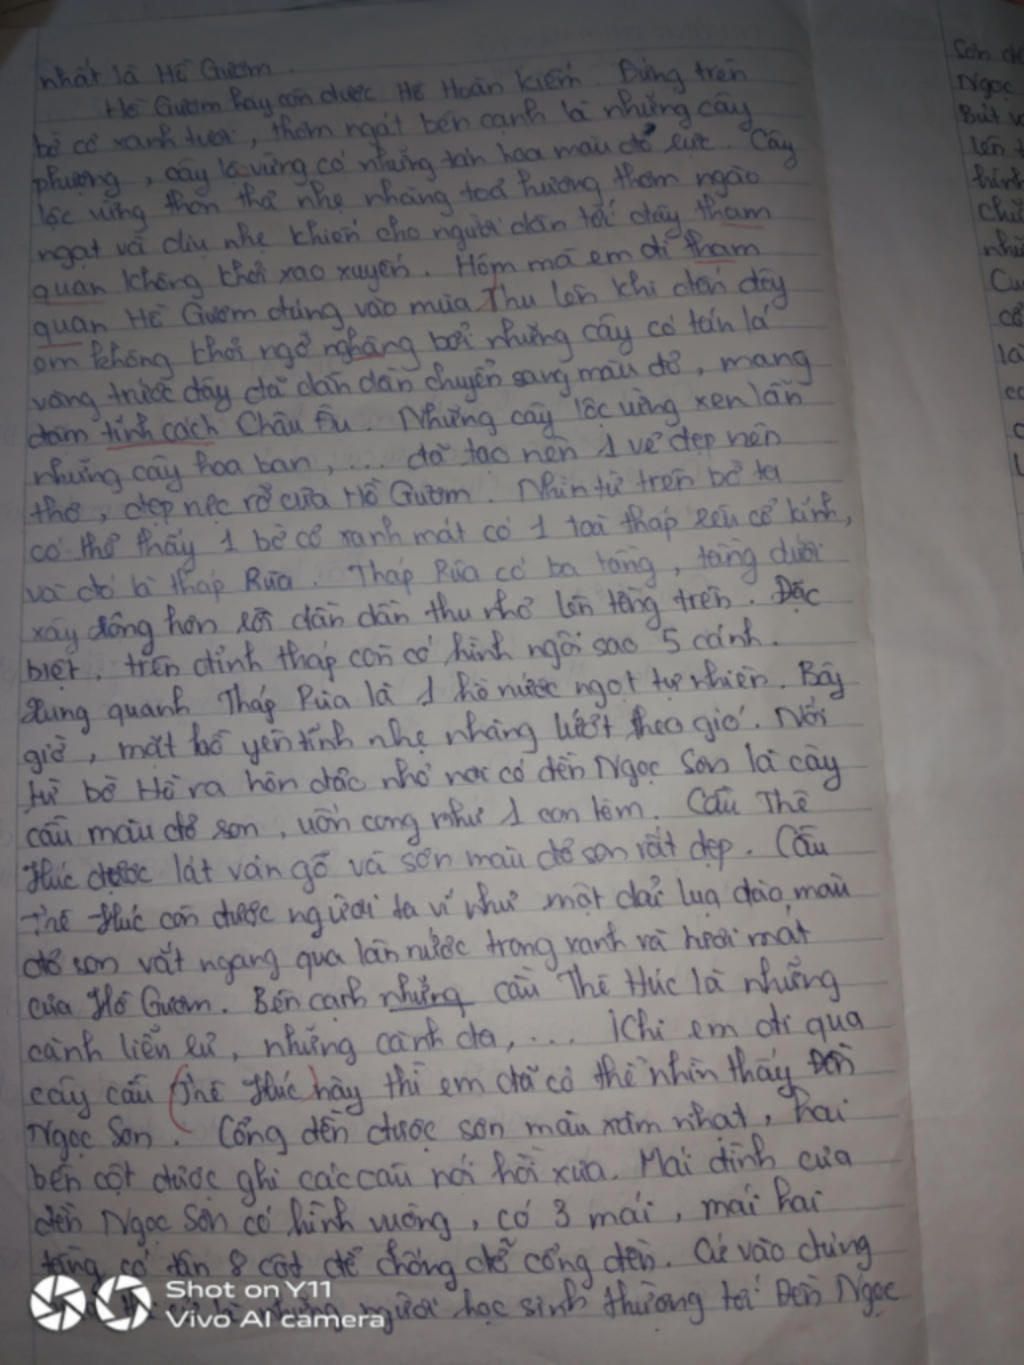 nhất là Hồ Gươm.
Hồ Gươm hay còn được Hồ Hoàn Kiếm. Đứng trên
bờ cỏ xanh tươi, thơm ngát bên cạnh là những cây
phượng, cây lộc vừng có những tán hoa màu đỏ rực. Cây
lộc vừng thon thả nhẹ nhàng toả hương thơm ngào
ngạt và dịu nhẹ khiến cho người dân tới đây tham
quan không khỏi xao xuyến. Hôm mà em đi tham
quan Hồ Gươm đúng vào mùa Thu lên khi đến đây
em không khỏi ngỡ nghàng bởi những cây có tán lá
vàng trước đây đã dần dần chuyển sang màu đỏ, mang
đậm tính cách Châu Âu. Những cây lộc vừng xen lẫn
những cây hoa ban, ... đã tạo nên 1 vẻ đẹp nên
thơ, đẹp rực rỡ của Hồ Gươm. Nhìn từ trên bờ ta
có thể thấy 1 bờ cỏ xanh mát có 1 toà tháp rêu cổ kính,
và đó là tháp Rùa. Tháp Rùa có ba tầng, tầng dưới
xây rộng hơn rồi dần dần thu nhỏ lên tầng trên. Đặc
biệt, trên đỉnh tháp còn có hình ngôi sao 5 cánh.
Xung quanh Tháp Rùa là 1 hồ nước ngọt tự nhiên. Bây
giờ, mặt hồ yên tĩnh nhẹ nhàng lướt theo gió. Nối
từ bờ Hồ ra hòn đảo nhỏ nơi có đền Ngọc Sơn là cây
cầu màu đỏ son, uốn cong như 1 con tôm. Cầu Thê
Húc được lát ván gỗ và sơn màu đỏ son rất đẹp. Cầu
Thê Húc còn được người ta ví như một dải lụa đào, màu
đỏ son vắt ngang qua làn nước trong xanh và tươi mát
của Hồ Gươm. Bên cạnh những cầu Thê Húc là những
cành liễu rủ, những cành đa, ... Khi em đi qua
cây cầu Thê Húc này thì em đã có thể nhìn thấy Đền
Ngọc Sơn. Cổng đền được sơn màu xám nhạt, hai
bên cột được ghi các câu nói hồi xưa. Mái đình của
đền Ngọc Sơn có hình vuông, có 3 mái, mái hai
tầng có tận 8 cột để chống đỡ cổng đền. Cứ vào đúng
những người học sinh thường tới Đền Ngọc
Sơn
Ngọc
Bút
lên
hình
nhữ
Cu
cổ
là
Shot on Y11
Vivo AI camera